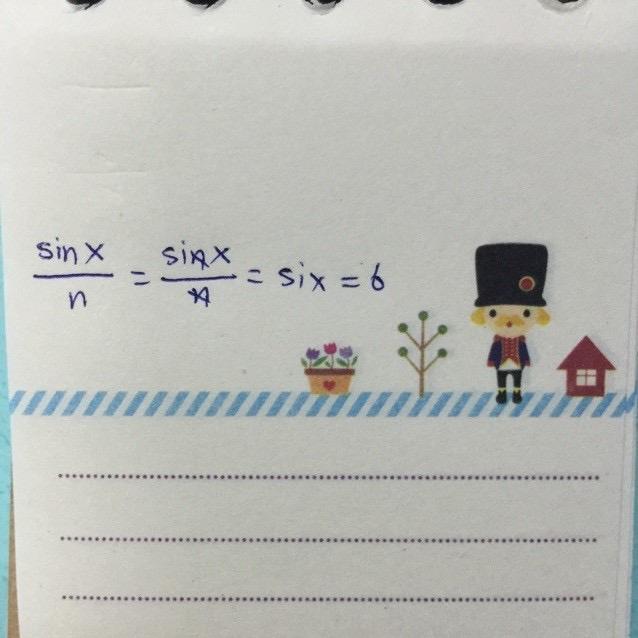 sin x / n = sin x / n = six = 6